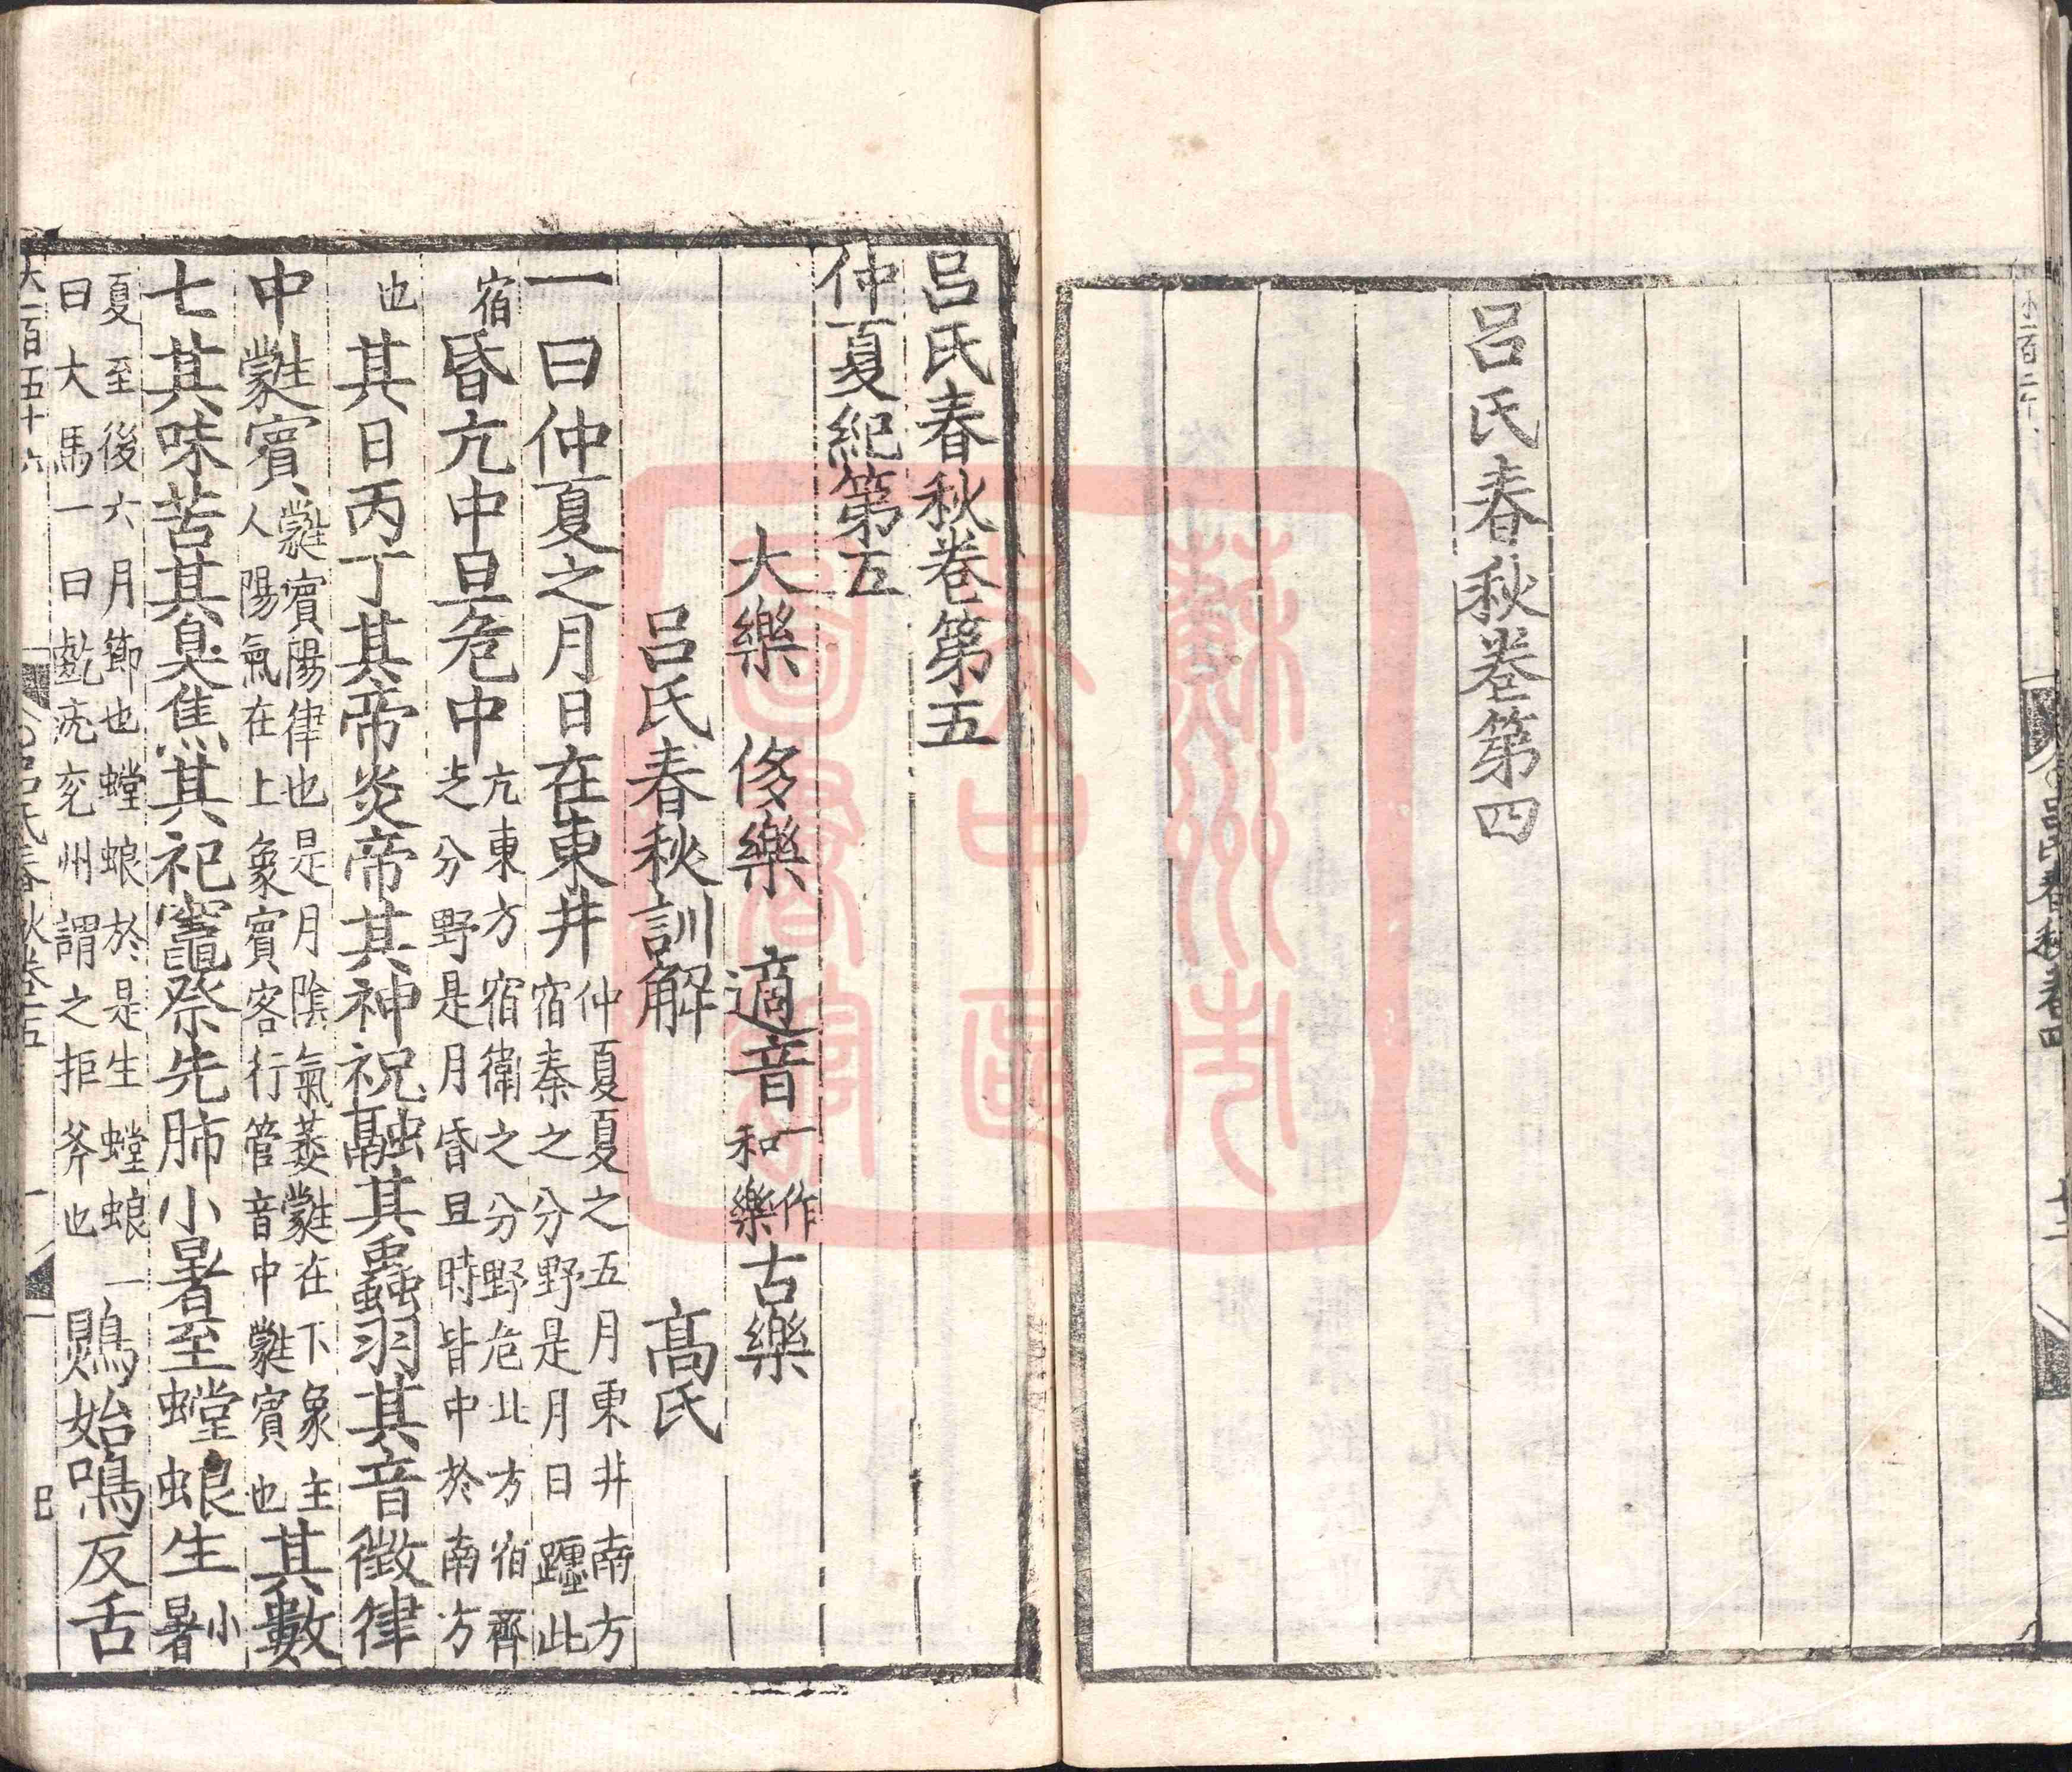 呂氏春秋卷第四
呂氏春秋卷第五
仲夏紀第五
大樂 侈樂 適音一作和樂 古樂
呂氏春秋訓解 高氏
一曰仲夏之月日在東井仲夏夏之五月東井南方宿秦之分野是月日躔此
宿昏亢中旦危中亢東方宿衛之分野危北方宿齊之分野是月昏旦時皆中於南方
也其日丙丁其帝炎帝其神祝融其蟲羽其音徵律
中蕤賓蕤賓陽律也是月陰氣萎蕤在下象主人陽氣在上象賓客行管音中蕤賓也其數
七其味苦其臭焦其祀竈祭先肺小暑至螳蜋生小暑
夏至後六月節也螳蜋於是生螳蜋一曰天馬一曰齕疣兖州謂之拒斧也鵙始鳴反舌
大一百五十六
呂氏春秋卷五
一
蘇州市吳中區圖書館